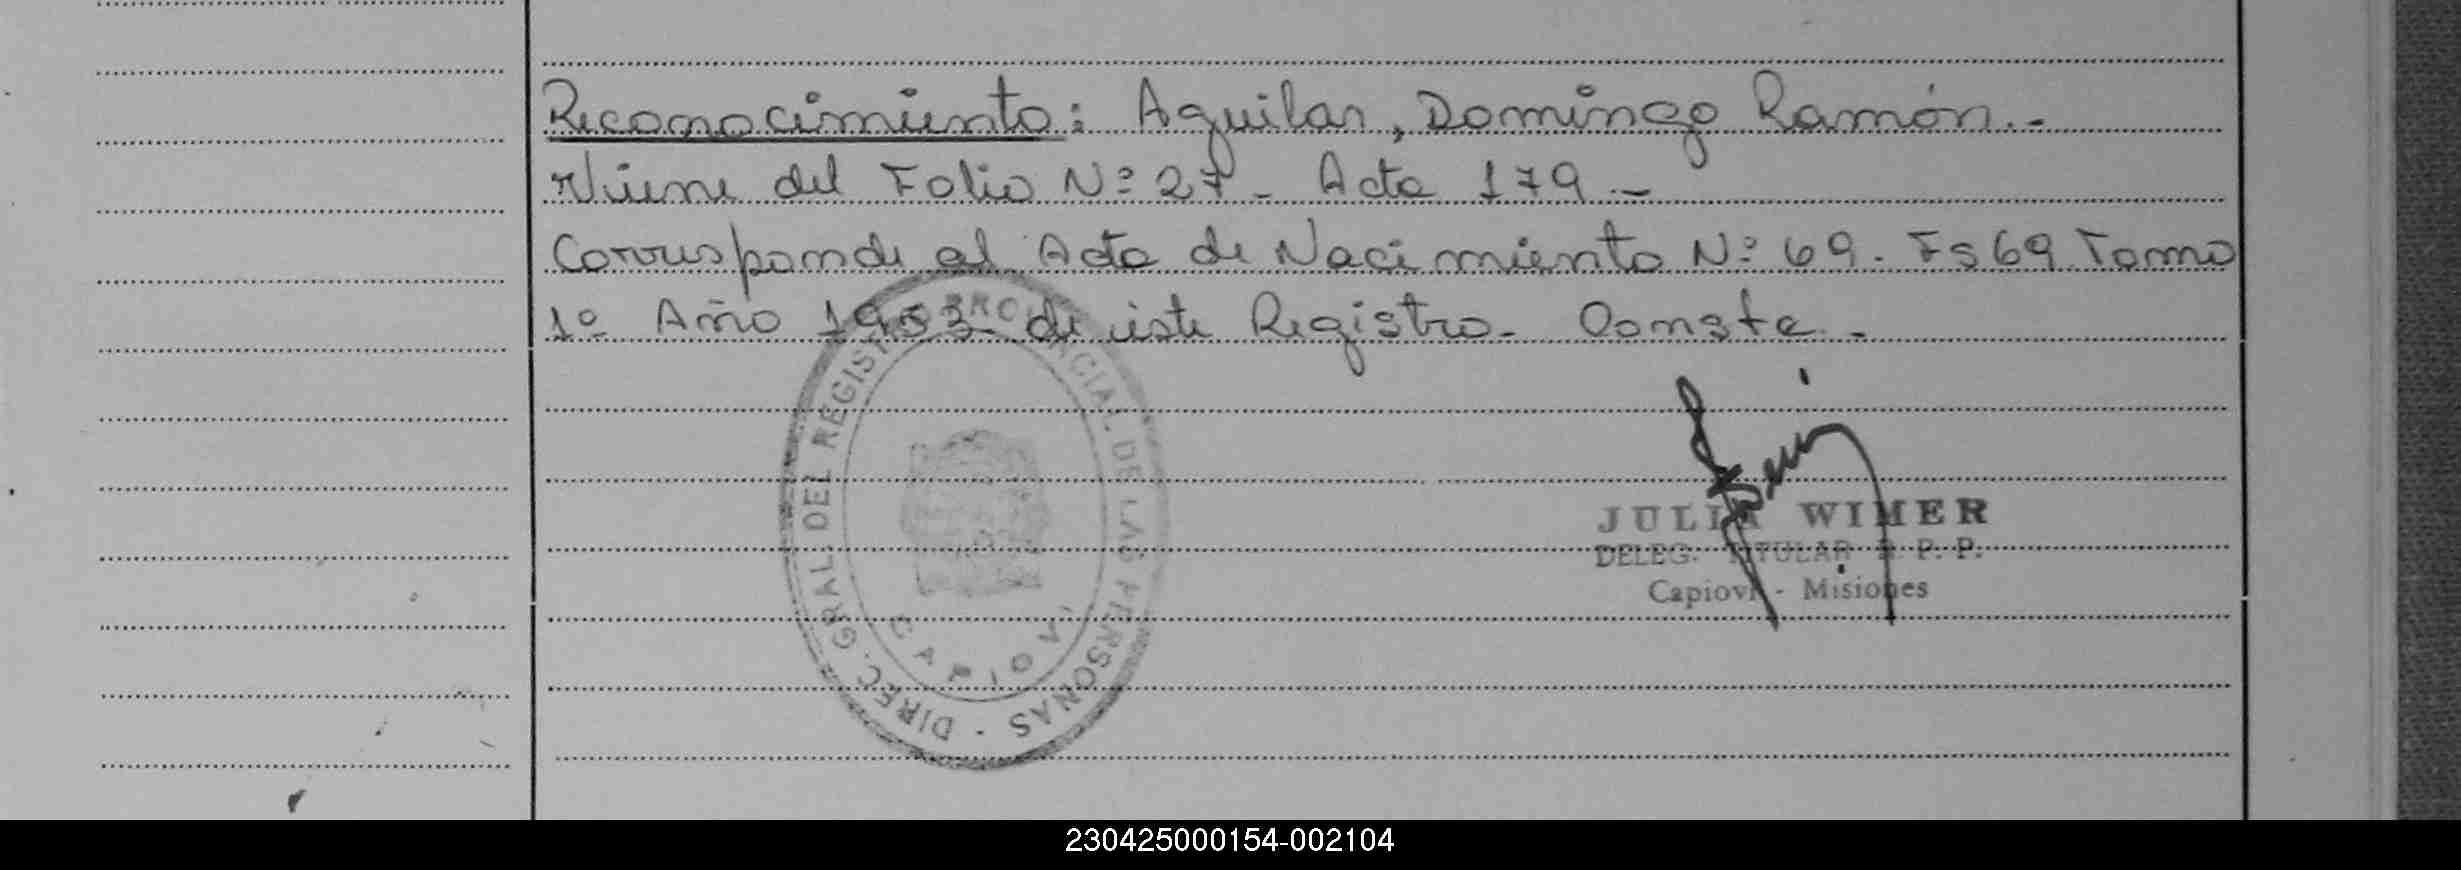 Reconocimiento: Aguilar, Domingo Ramón.-
Viene del Folio Nº 27 - Acta 179.-
Corresponde al Acta de Nacimiento Nº 69. Fs 69 Tomo
1º Año 1953- de este Registro- Conste.-
DIREC. GRAL. DEL REGISTRO PROVINCIAL DE LAS PERSONAS -
CAPIOVI
JULIA WIMER
DELEG. TITULAR R. P. P.
Capiovi - Misiones
230425000154-002104